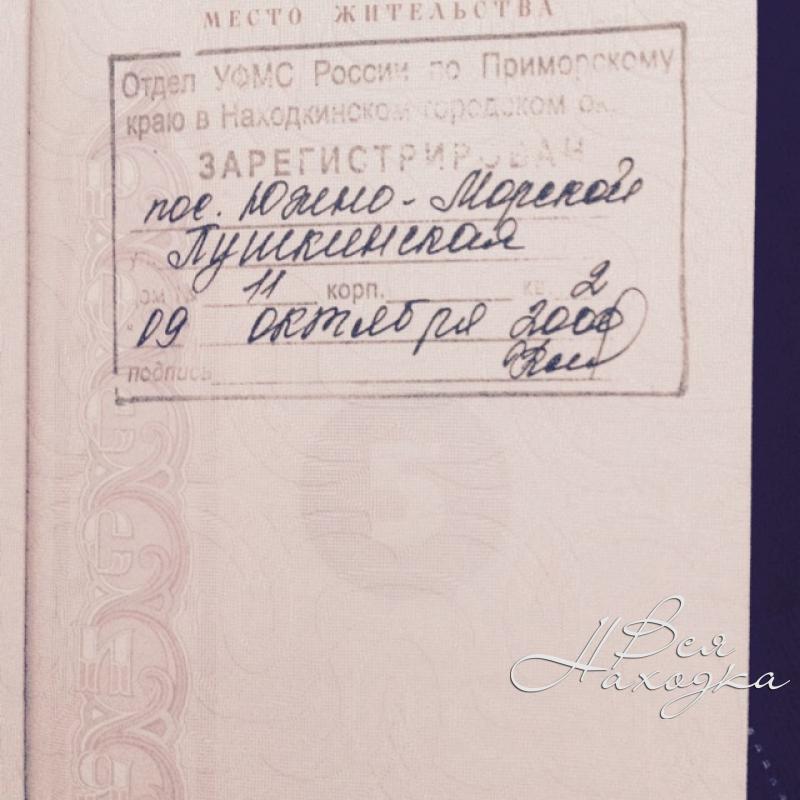 МЕСТО ЖИТЕЛЬСТВА
Отдел УФМС России по Приморскому
краю в Находкинском городском ок.
ЗАРЕГИСТРИРОВАН
пос. Южно-Морской
ул. Пушкинская
дом № 11 корп. кв. 2
"09 октября
подпись
Вся
Находка